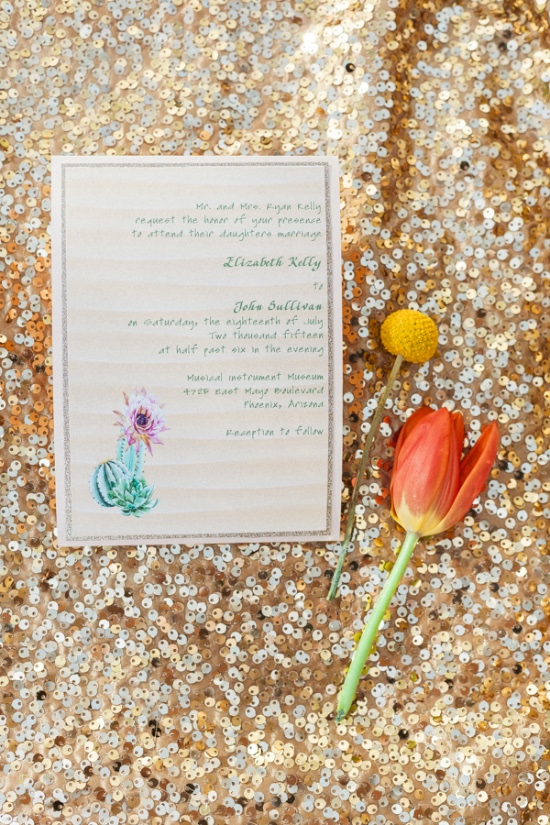 Mr. and Mrs. Ryan Kelly
request the honor of your presence
to attend their daughters marriage
Elizabeth Kelly
to
John Sullivan
on Saturday, the eighteenth of July
Two thousand fifteen
at half past six in the evening
Musical Instrument Museum
4725 East Mayo Boulevard
Phoenix, Arizona
Reception to follow